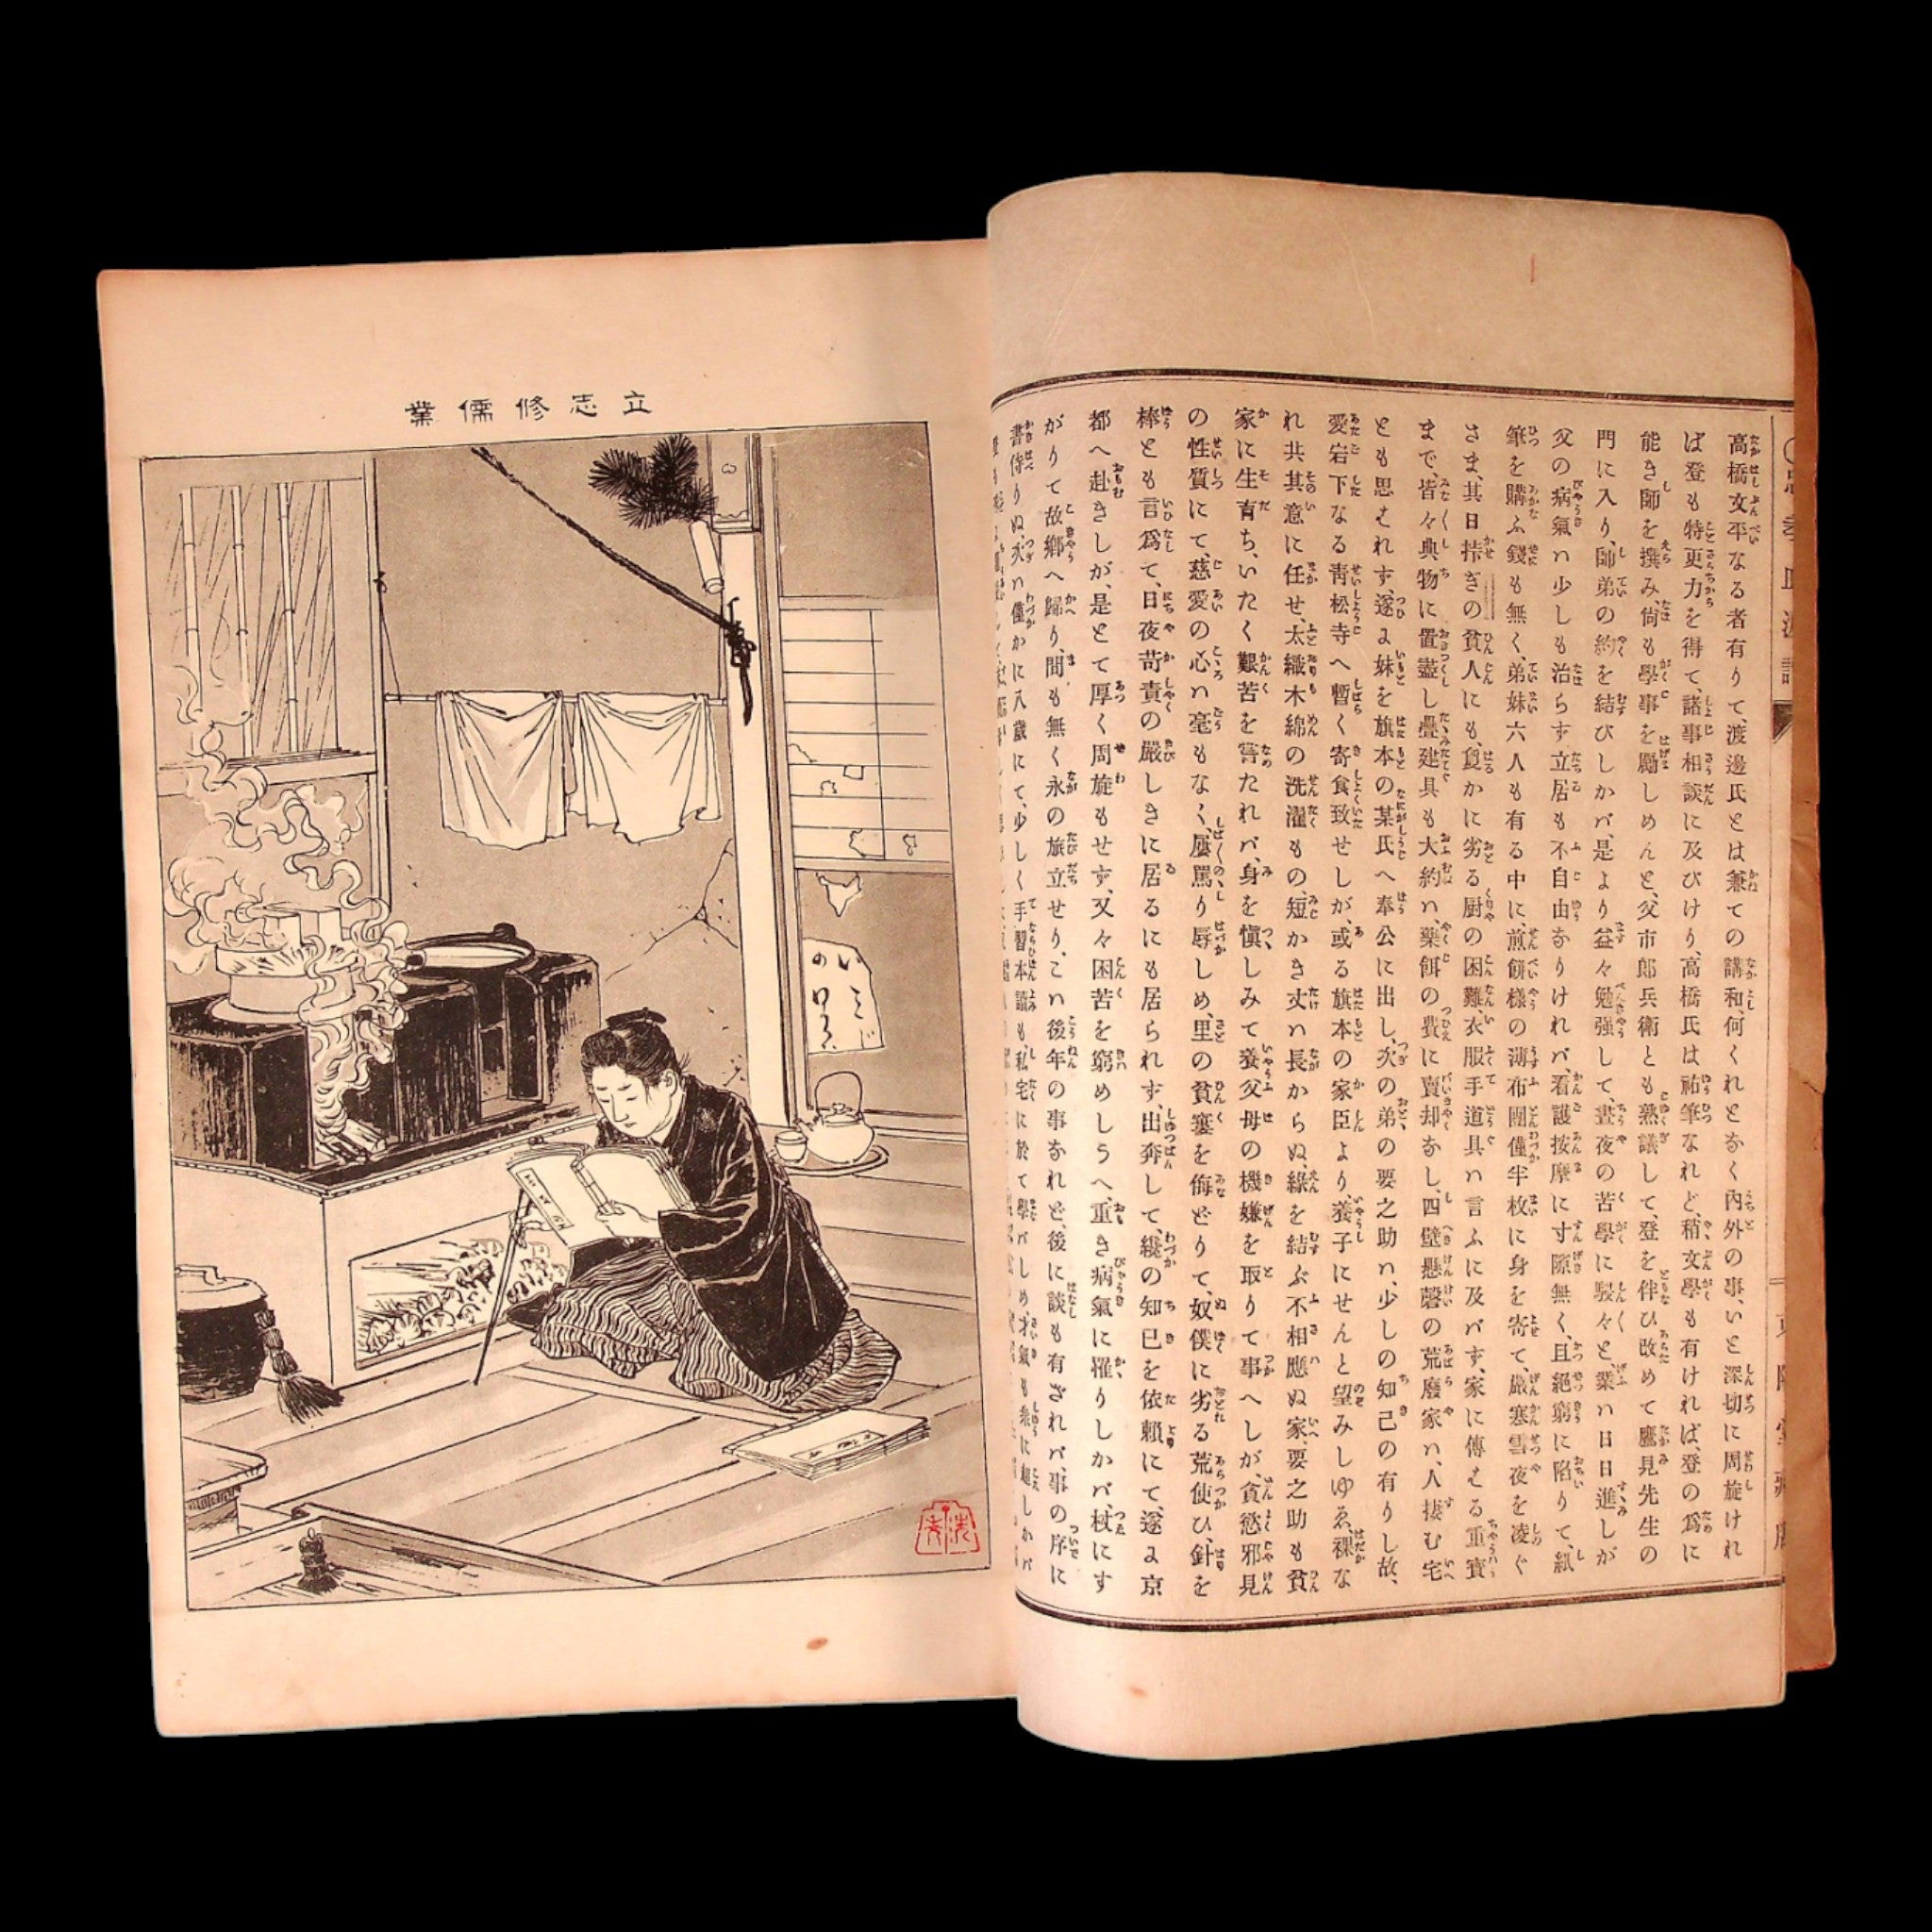 高橋文平なる者有りて、渡邊氏とは兼ての講和、何くれとなく內外の事、いと深切に周旋けれ
ば登も特更力を得て、諸事相談に及びけり、高橋氏は祐筆なれど、稍文學も有ければ、登の爲に
能き師を撰み、尙も學事を勵しめんと、父市郎兵衛とも熟議して、登を伴ひ改めて鷹見先生の
門に入り、師弟の約を結びしかバ、是より益々勉强して、晝夜の苦學に駸々と業ハ日日進しが
父の病氣ハ少しも治らす立居も不自由なりけれバ、看護按摩に寸隙無く、且絕窮に陷りて、紙
筆を購ふ錢も無く、弟妹六人も有る中に、煎餅樣の薄布團僅半枚に身を寄て、嚴寒雪夜を凌ぐ
さま、其日持ぎの貧人にも、負かに劣る厨の困難、衣服手道具ハ言ふに及バず、家に傳える重寶
まで、皆々典物に置盡し疊建具も大約ハ、藥餌の費に賣却なし、四壁懸磬の荒廢家ハ、人捿む宅
とも思えれず、遂よ妹を旗本の某氏へ奉公に出し、次の弟の要之助ハ、少しの知己の有りし故、
愛宕下なる靑松寺へ暫く寄食致せしが、或る旗本の家臣より、養子にせんと望みしゆゑ、裸な
れ共其意に任せ、太織木綿の洗濯もの、短かき丈ハ長からぬ、緣を結ぶ不相應ぬ家、要之助も貧
家に生育ち、いたく艱苦を甞たれバ、身を愼しみて養父母の機嫌を取りて事へしが、貪慾邪見
の性質にて、慈愛の心ハ毫もなく、屢罵り辱しめ、里の貧寠を侮どりて、奴僕に劣る荒使ひ、針を
棒とも言爲て、日夜苛責の嚴しきに居るにも居られす、出奔して、纔の知己を依賴にて、遂よ京
都へ赴きしが、是とて厚く周旋もせす、又々困苦を窮めしうへ、重き病氣に罹りしかバ、杖にす
がりて故鄕へ歸り、間も無く永の旅立せり、こハ後年の事なれど、後に談も有ざれバ、事の序に
書侍りぬ、次ハ僅かに八歲にて、少しく手習本讀も、私宅に於て學バしめ、才氣も衆に超しかバ
立志修儒業